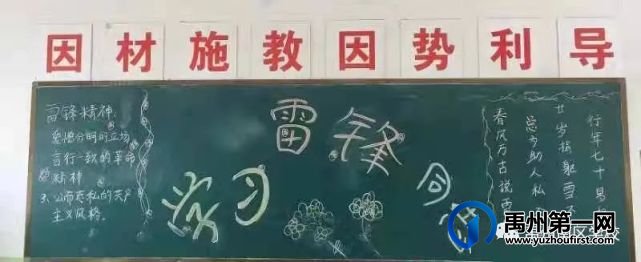 因材施教因势利导
雷锋精神:
爱憎分明的立场
言行一致的革命
精神
3、公而忘私的共产
主义风格。
学习
雷锋
同志
廿岁捐躯雪
总为助人私
春风万古说
禹州第一网
www.yuzhoufirst.com